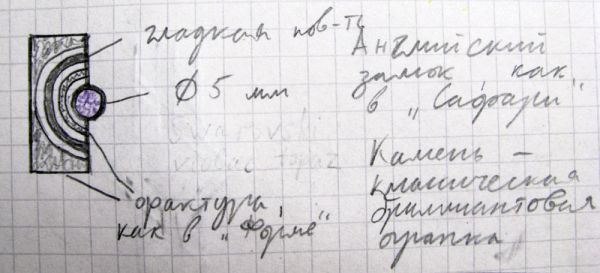 гладкая пов-ть
Ø 5 мм
swarovski
violac topaz
фрактура,
как в „Форме“
Английский
замок как
в „Сафари“
Камень –
классическая
бриллиантовая
огранка